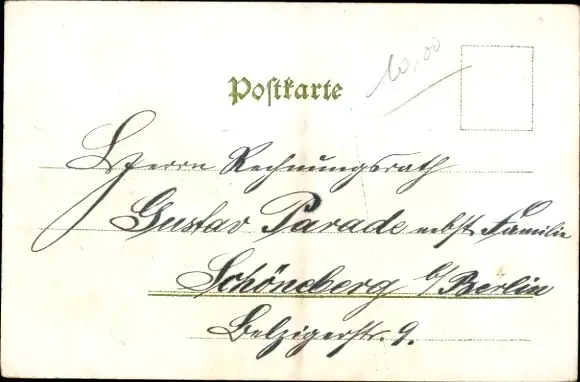 10,00
Postkarte
Herrn Rechnungsrath
Gustav Parade nebst Familie
Schöneberg b/Berlin
Belzigerstr. 9.